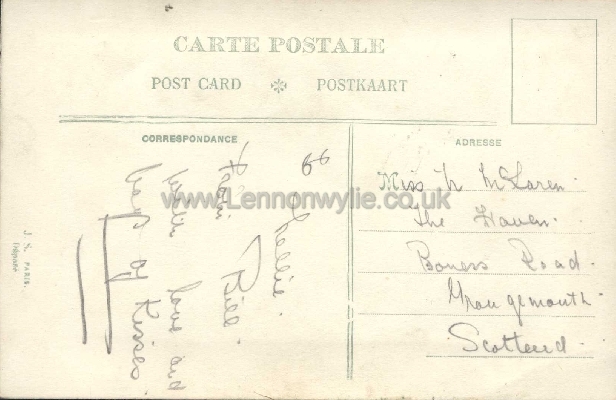 CARTE POSTALE
POST CARD ※ POSTKAART
CORRESPONDANCE
To Nellie.
From Bill.
with love and
bags of Kisses
ADRESSE
Miss N McLaren.
The Haven.
Boness Road.
Grangemouth.
Scotland.
J. S. PARIS.
Déposé
www.Lennonwylie.co.uk